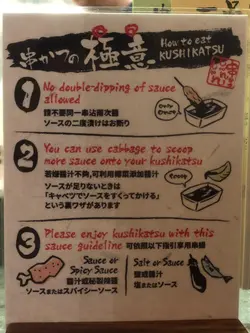 串かつの極意
How to eat
KUSHIKATSU
1
No double-dipping of sauce
allowed
請不要同一串沾兩次醬
ソースの二度漬けはお断り
Only
Once
2
You can use cabbage to scoop
more sauce onto your kushikatsu
若嫌醬汁不夠,可利用椰菜添加醬汁
ソースが足りないときは
「キャベツでソースをすくってかける」
という裏ワザがあります
Scoop
3
Please enjoy kushikatsu with this
sauce guideline 可依照以下指引享用串燒
Sauce or
Spicy Sauce
醬汁或秘製辣醬
ソースまたはスパイシーソース
Salt or Sauce
鹽或醬汁
塩またはソース